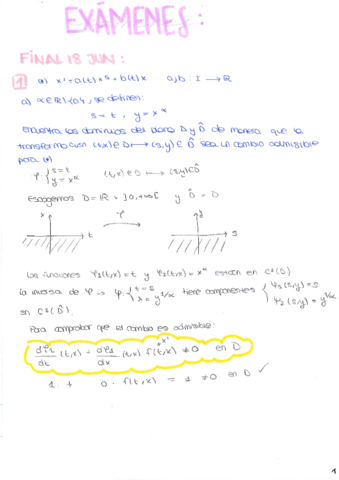 EXÁMENES:
FINAL 18 JUN:
1 a) x' = a(t)x⁵ + b(t)x a,b: I → ℝ
a) α∈ℝ\{0}, se definen:
s = t, y = x^α
encuentra los dominios del plano D y D̂ de manera que la
transformación (t,x)∈D ↦ (s,y)∈D̂ sea un cambio admisible
para (*)
φ { s=t y=x^α (t,x)∈D ↦ (s,y)∈D̂
Escogemos D = ℝ × ]0,+∞[ y D̂ = D
x φ y
t s
Las funciones φ₁(t,x) = t y φ₂(t,x) = x^α están en C¹(D)
la inversa de φ → φ: { t=s x=y^1/α tiene componentes { ψ₁(s,y)=s ψ₂(s,y)=y^1/α
en C¹(D̂).
Para comprobar que el cambio es admisible:
dφ₁/dt (t,x) + dφ₁/dx (t,x) f(t,x) ≠ 0 en D
x'
1 + 0 · f(t,x) = 1 ≠ 0 en D ✓
1